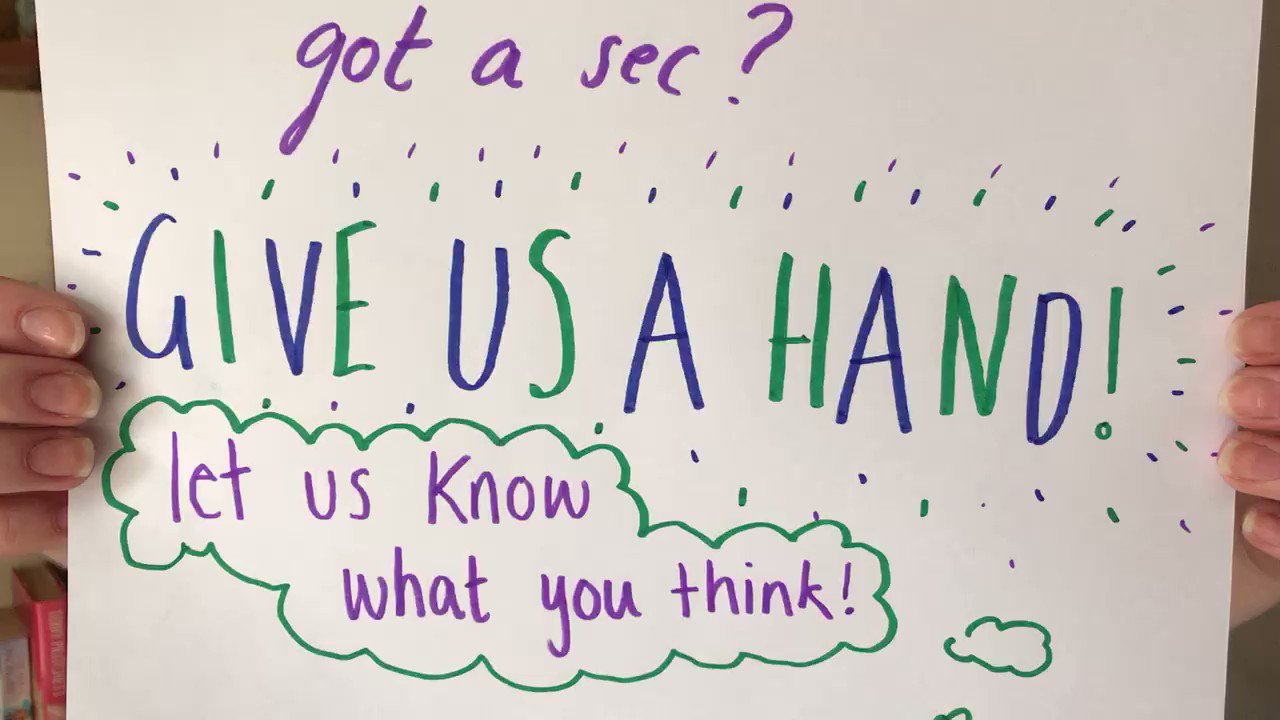 got a sec?
GIVE US A HAND!
let us know
what you think!